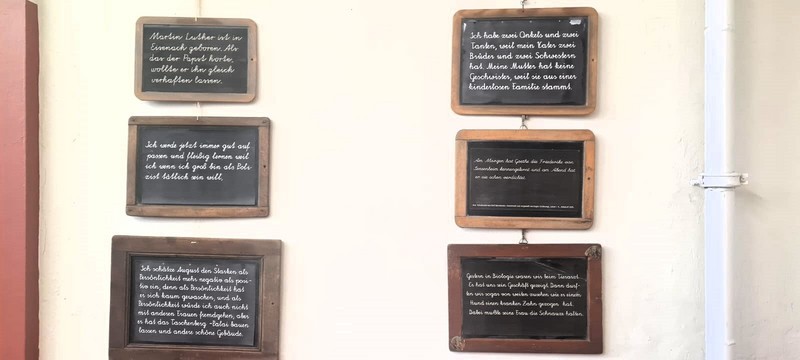 Martin Luther ist in
Eisenach geboren. Als
das der Papst hörte,
wollte er ihn gleich
verhaften lassen.
Ich werde jetzt immer gut auf-
passen und fleißig lernen weil
ich wenn ich groß bin als Poli-
zist tätlich sein will.
Ich schätze August den Starken als
Persönlichkeit mehr negativ als posi-
tiv ein, denn als Persönlichkeit hat
er sich kaum gewaschen, und als
Persönlichkeit würde ich auch nicht
mit anderen Frauen fremdgehen, aber
er hat das Taschenberg-Palai bauen
lassen und andere schöne Gebäude.
Ich habe zwei Onkels und zwei
Tanten, weil mein Vater zwei
Brüder und zwei Schwestern
hat. Meine Mutter hat keine
Geschwister, weil sie aus einer
kinderlosen Familie stammt.
Am Morgen hat Goethe die Friederike von
Sesenheim kennengelernt und am Abend hat
er sie schon verdichtet.
Gestern in Biologie waren wir beim Tierarzt.
Er hat uns sein Geschäft gezeigt. Dann durf-
ten wir sogar von weiten zusehen wie er einem
Hund einen kranken Zahn gezogen hat.
Dabei mußte seine Frau die Schnauze halten.